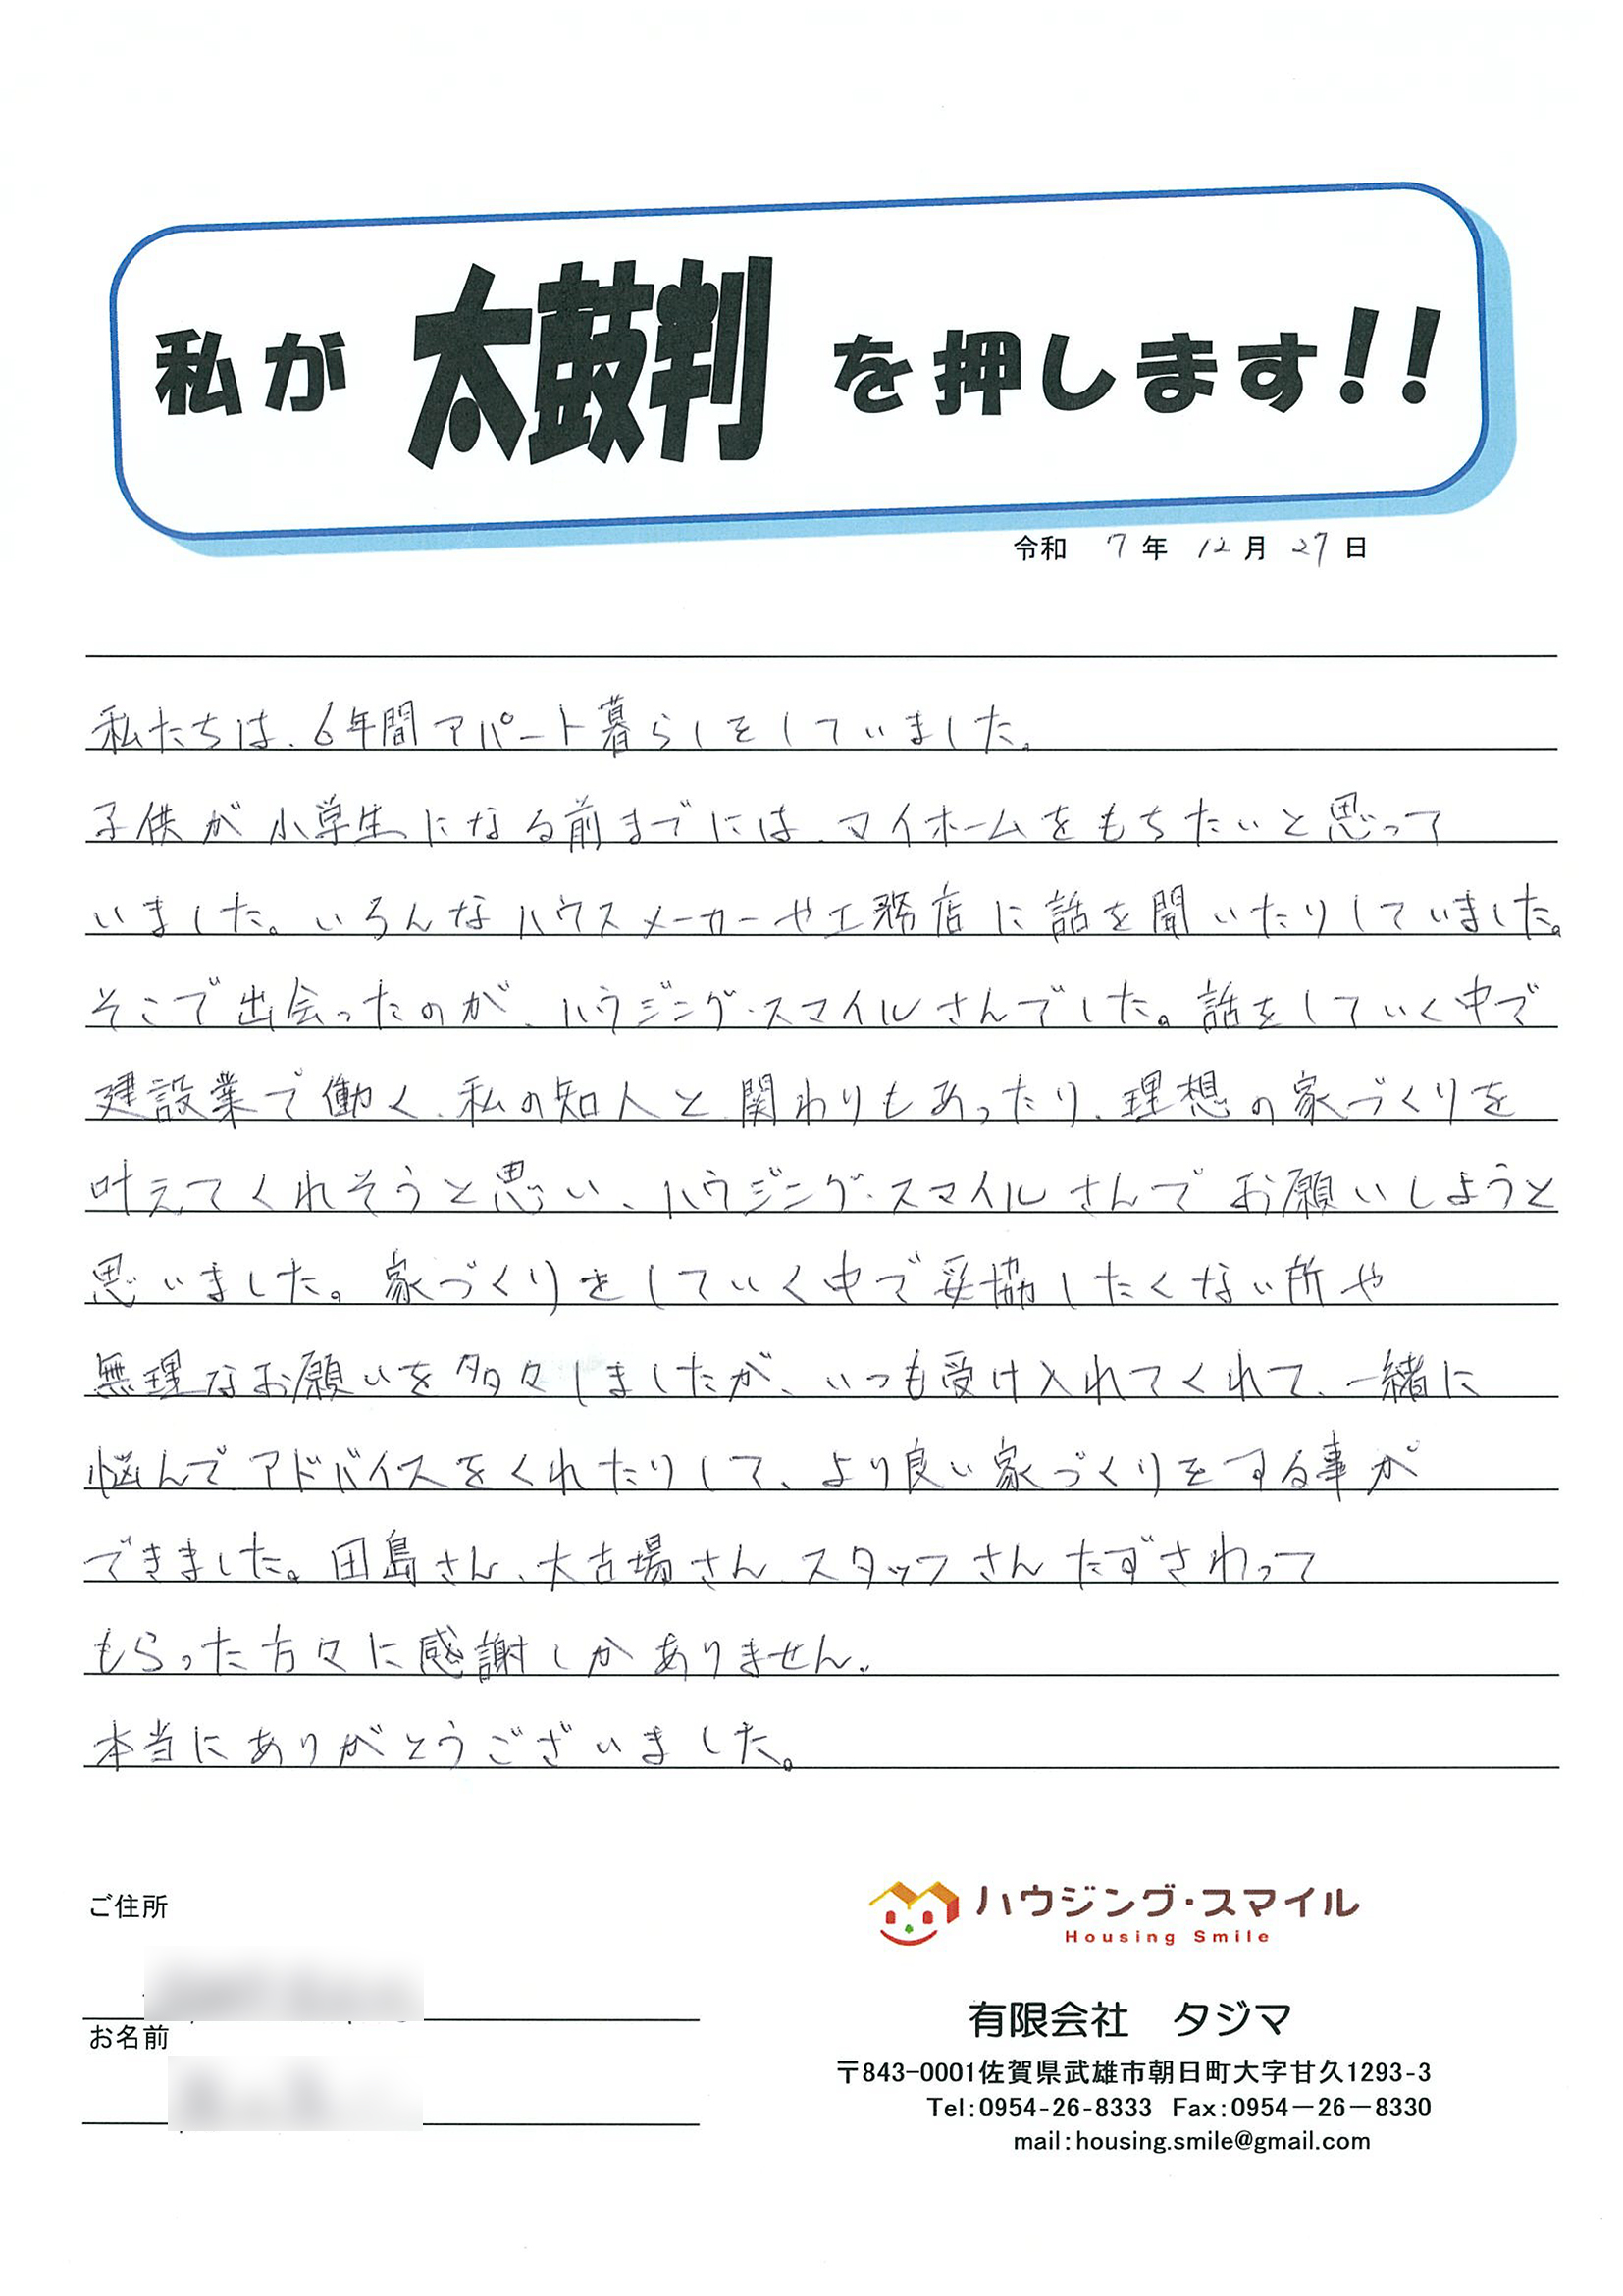 私が 太鼓判 を押します!!
令和 7 年 12 月 27 日
私たちは、6年間アパート暮らしをしていました。
子供が小学生になる前までには、マイホームをもちたいと思って
いました。いろんなハウスメーカーや工務店に話を聞いたりしていました。
そこで出会ったのが、ハウジング・スマイルさんでした。話をしていく中で
建設業で働く、私の知人と関わりもあったり、理想の家づくりを
叶えてくれそうと思い、ハウジング・スマイルさんでお願いしようと
思いました。家づくりをしていく中で妥協したくない所や
無理なお願いを多々しましたが、いつも受け入れてくれて、一緒に
悩んでアドバイスをくれたりして、より良い家づくりをする事が
できました。田島さん、大古場さん、スタッフさんたずさわって
もらった方々に感謝しかありません。
本当にありがとうございました。
ご住所
お名前
ハウジング・スマイル
Housing Smile
有限会社 タジマ
〒843-0001佐賀県武雄市朝日町大字甘久1293-3
Tel:0954-26-8333 Fax:0954-26-8330
mail:housing.smile@gmail.com